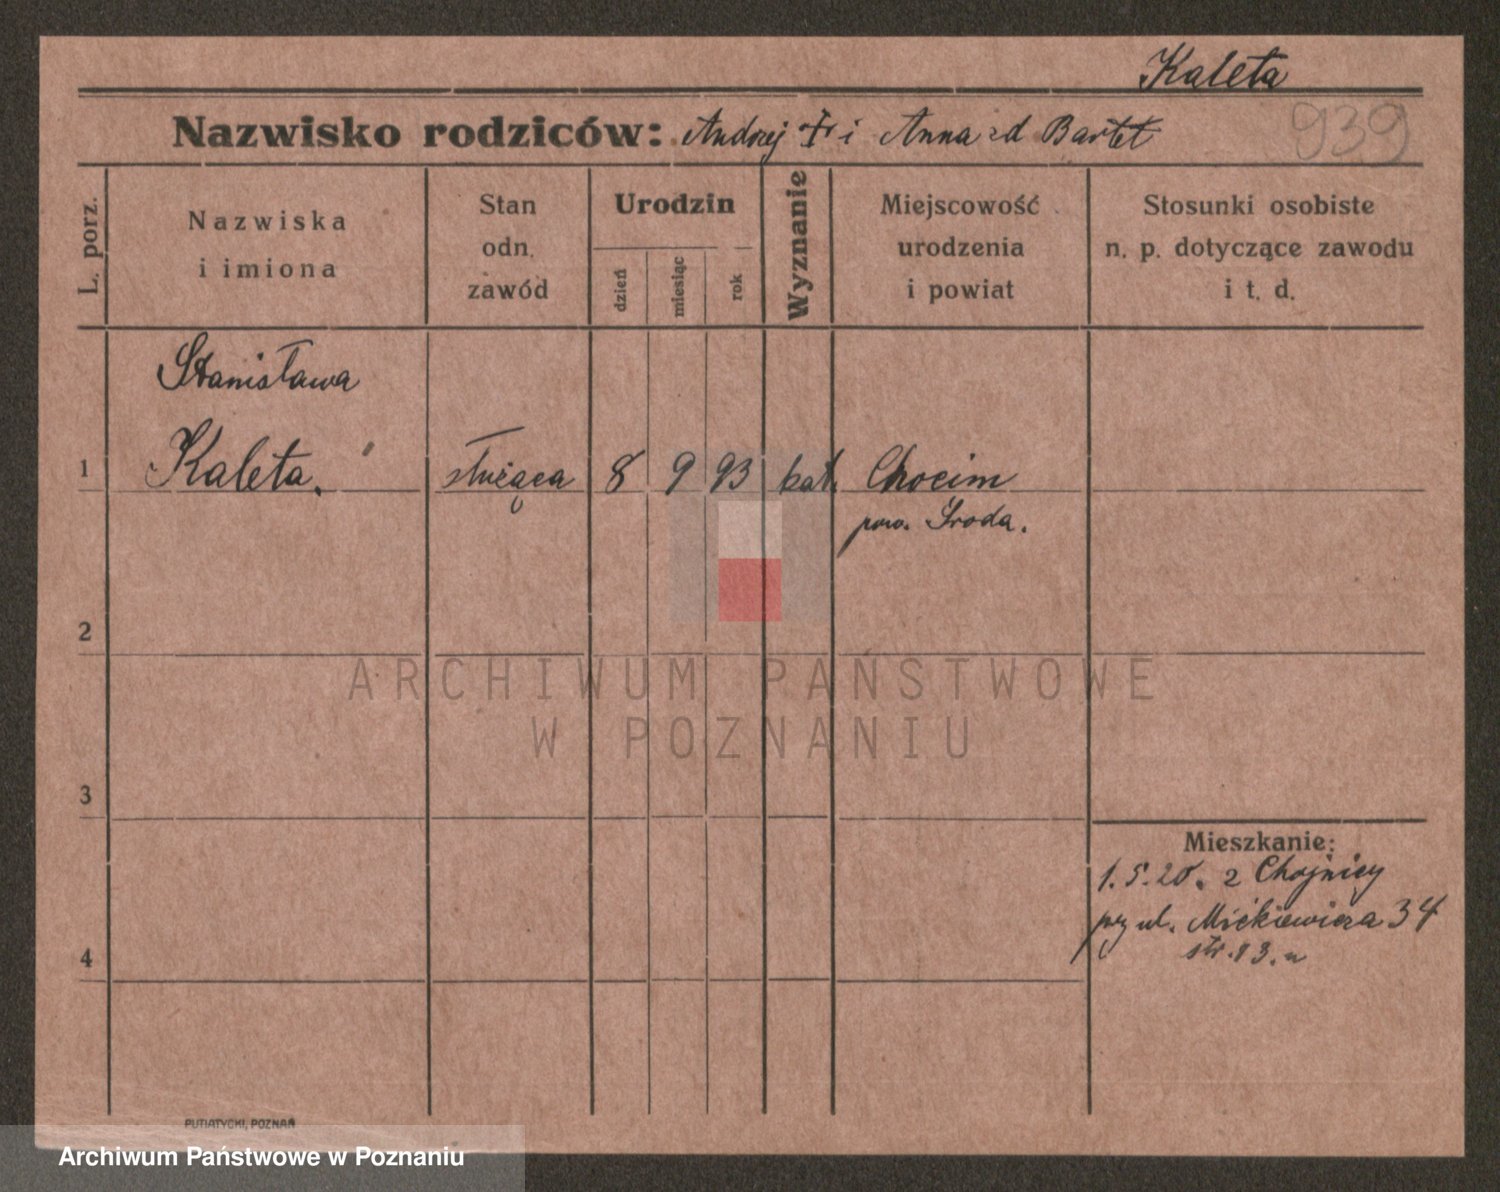 Kaleta
Nazwisko rodziców: Andrzej i Anna zd Bartet
939
L. porz.
Nazwiska
i imiona
Stan
odn.
zawód
Urodzin
dzień
miesiąc
rok
Wyznanie
Miejscowość
urodzenia
i powiat
Stosunki osobiste
n. p. dotyczące zawodu
i t. d.
Stanisława
1 Kaleta. służąca 8 9 93 kat. Chocim
pow. Środa.
2
ARCHIWUM PAŃSTWOWE
W POZNANIU
3
Mieszkanie:
1.5.20. z Chojnicy
przy ul. Mickiewicza 34
4
PUTIATYCKI, POZNAŃ
Archiwum Państwowe w Poznaniu